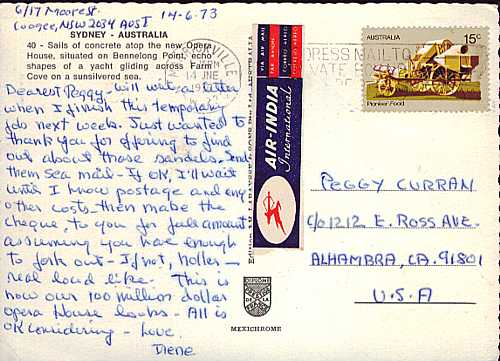 6/17 Moore st.
Coogee, NSW 2034 AUST
14-6-73
SYDNEY - AUSTRALIA
40 - Sails of concrete atop the new Opera
House, situated on Bennelong Point, echo
shapes of a yacht gliding across Farm
Cove on a sunsilvered sea.
Dearest Peggy - will write a letter
when I finish this temporary
job next week. Just wanted to
thank you for offering to find
out about those sandals. Send
them Sea mail - If OK, I'll wait
until I know postage and any
other costs, then make the
cheque to you for full amount
assuming you have enough
to fork out - If not, holler -
real loud like. This is
how our 100 million dollar
opera House looks - All is
OK considering - Love.
Diene
VIA AIR MAIL
PAR AVION
CORREO AEREO
AIR-INDIA
International
14 JNE
RESS MAIL TO
VATE B
DE
AUSTRALIA
15c
Pioneer Food
PEGGY CURRAN
C/O 1212 E. ROSS AVE.
ALHAMBRA, CA. 91801
U.S.A
DIPLOME
DE LA
MEXICHROME